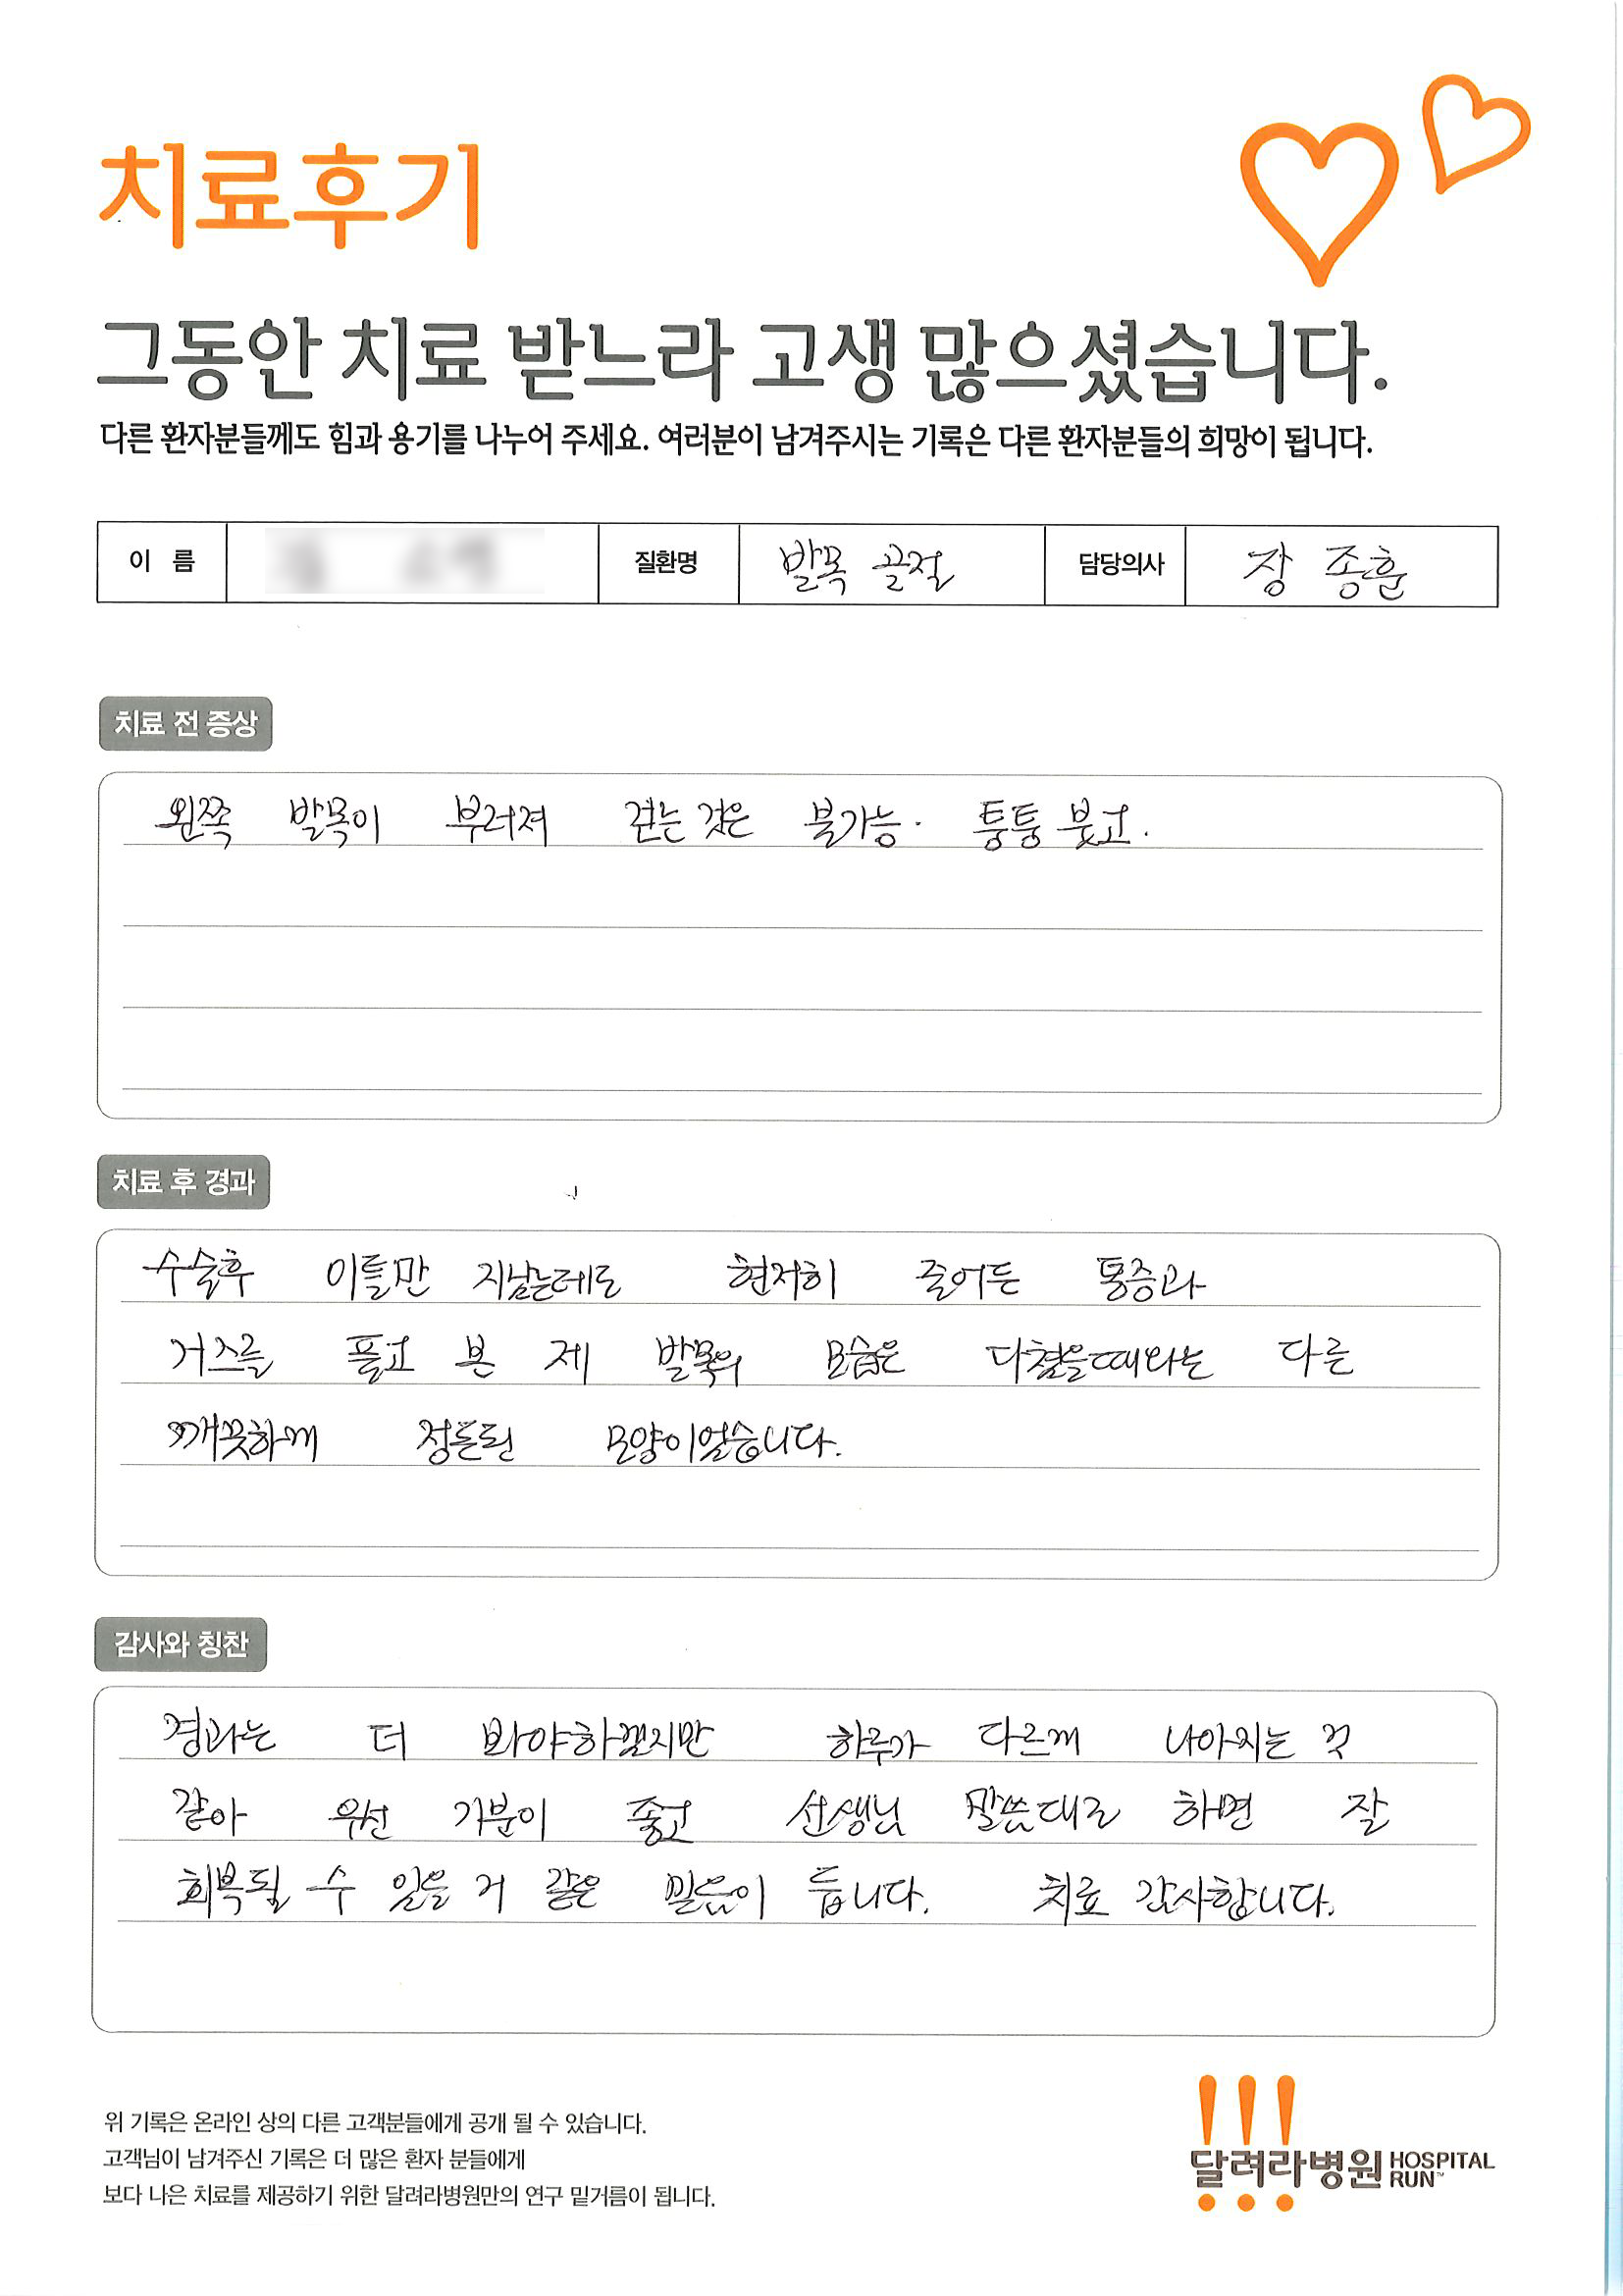 치료후기
그동안 치료 받느라 고생 많으셨습니다.
다른 환자분들께도 힘과 용기를 나누어 주세요. 여러분이 남겨주시는 기록은 다른 환자분들의 희망이 됩니다.
이 름 질환명 발목 골절 담당의사 장 종훈
치료 전 증상
왼쪽 발목이 부러져 걷는 것은 불가능. 퉁퉁 붓고.
치료 후 경과
수술후 이틀만 지났는데도 현저히 줄어든 통증과
거즈를 풀고 본 제 발목의 모습은 다쳤을때와는 다른
깨끗하게 정돈된 모양이었습니다.
감사와 칭찬
경과는 더 봐야하겠지만 하루가 다르게 나아지는 것
같아 우선 기분이 좋고 선생님 말씀대로 하면 잘
회복될 수 있을 거 같은 믿음이 듭니다. 치료 감사합니다.
위 기록은 온라인 상의 다른 고객분들에게 공개 될 수 있습니다.
고객님이 남겨주신 기록은 더 많은 환자 분들에게
보다 나은 치료를 제공하기 위한 달려라병원만의 연구 밑거름이 됩니다.
달려라병원 HOSPITAL RUN™